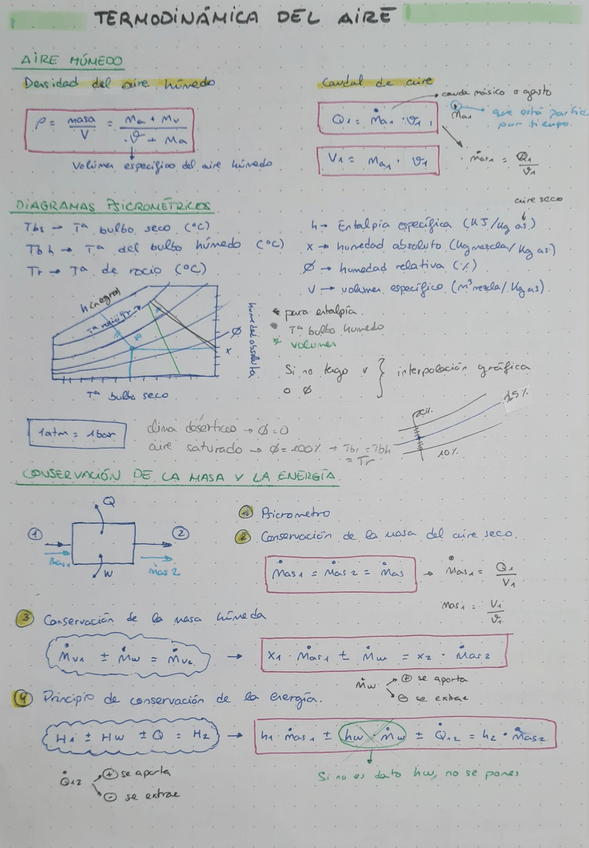 TERMODINÁMICA DEL AIRE
AIRE HÚMEDO
Densidad del aire húmedo
ρ = masa/V = (Ma + Mv)/(ϑ + Ma)
Volumen específico del aire húmedo
Caudal de aire
caudal másico o gasto
Q1 = ṁa1 · ϑ1
ṁa1 → que está
por tiempo.
V1 = ma1 · ϑ1
ṁas1 = Q1/ϑ1
DIAGRAMAS PSICROMÉTRICOS
Tbs → Tª bulbo seco (ºC)
Tbh → Tª del bulbo húmedo (ºC)
Tr → Tª de rocío (ºC)
aire seco
h → Entalpía específica (KJ/Kg as)
x → humedad absoluta (Kg mezcla/Kg as)
∅ → humedad relativa (%)
V → volumen específico (m³ mezcla/Kg as).
∅
x
humedad absoluta
Tª bulbo seco
* para entalpía.
* Tª bulbo húmedo
* volumen
Si no tengo v
o ∅
} interpolación gráfica
20%
15%
10%
1 atm = 1 bar
clima désertico → ∅ = 0
aire saturado → ∅ = 100% → Tbs = Tbh
= Tr
CONSERVACIÓN DE LA MASA Y LA ENERGÍA
Q
1
2
ṁas1
ṁas2
W
1 Psicrometro
2 Conservación de la masa del aire seco.
ṁas1 = ṁas2 = ṁas → ṁas1 = Q1/V1
mas1 = V1/ϑ1
3 Conservación de la masa húmeda
ṁv1 ± ṁw = ṁv2 → x1 · ṁas1 ± ṁw = x2 · ṁas2
ṁw
⊕ se aporta
⊖ se extrae
4 Principio de conservación de la energía.
H1 ± Hw ± Q = H2 → h1 · ṁas1 ± hw · ṁw ± Q̇12 = h2 · ṁas2
Q̇12
⊕ se aporta
⊖ se extrae
Si no es dato hw, no se pones